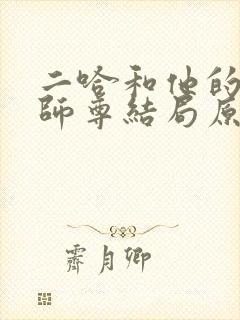 二哈和他的
師尊結局原
霽月卿